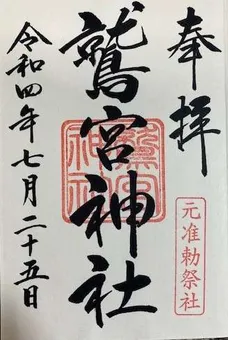 奉拝
元准勅祭社
鷲宮神社
鷲宮神社
令和四年七月二十五日